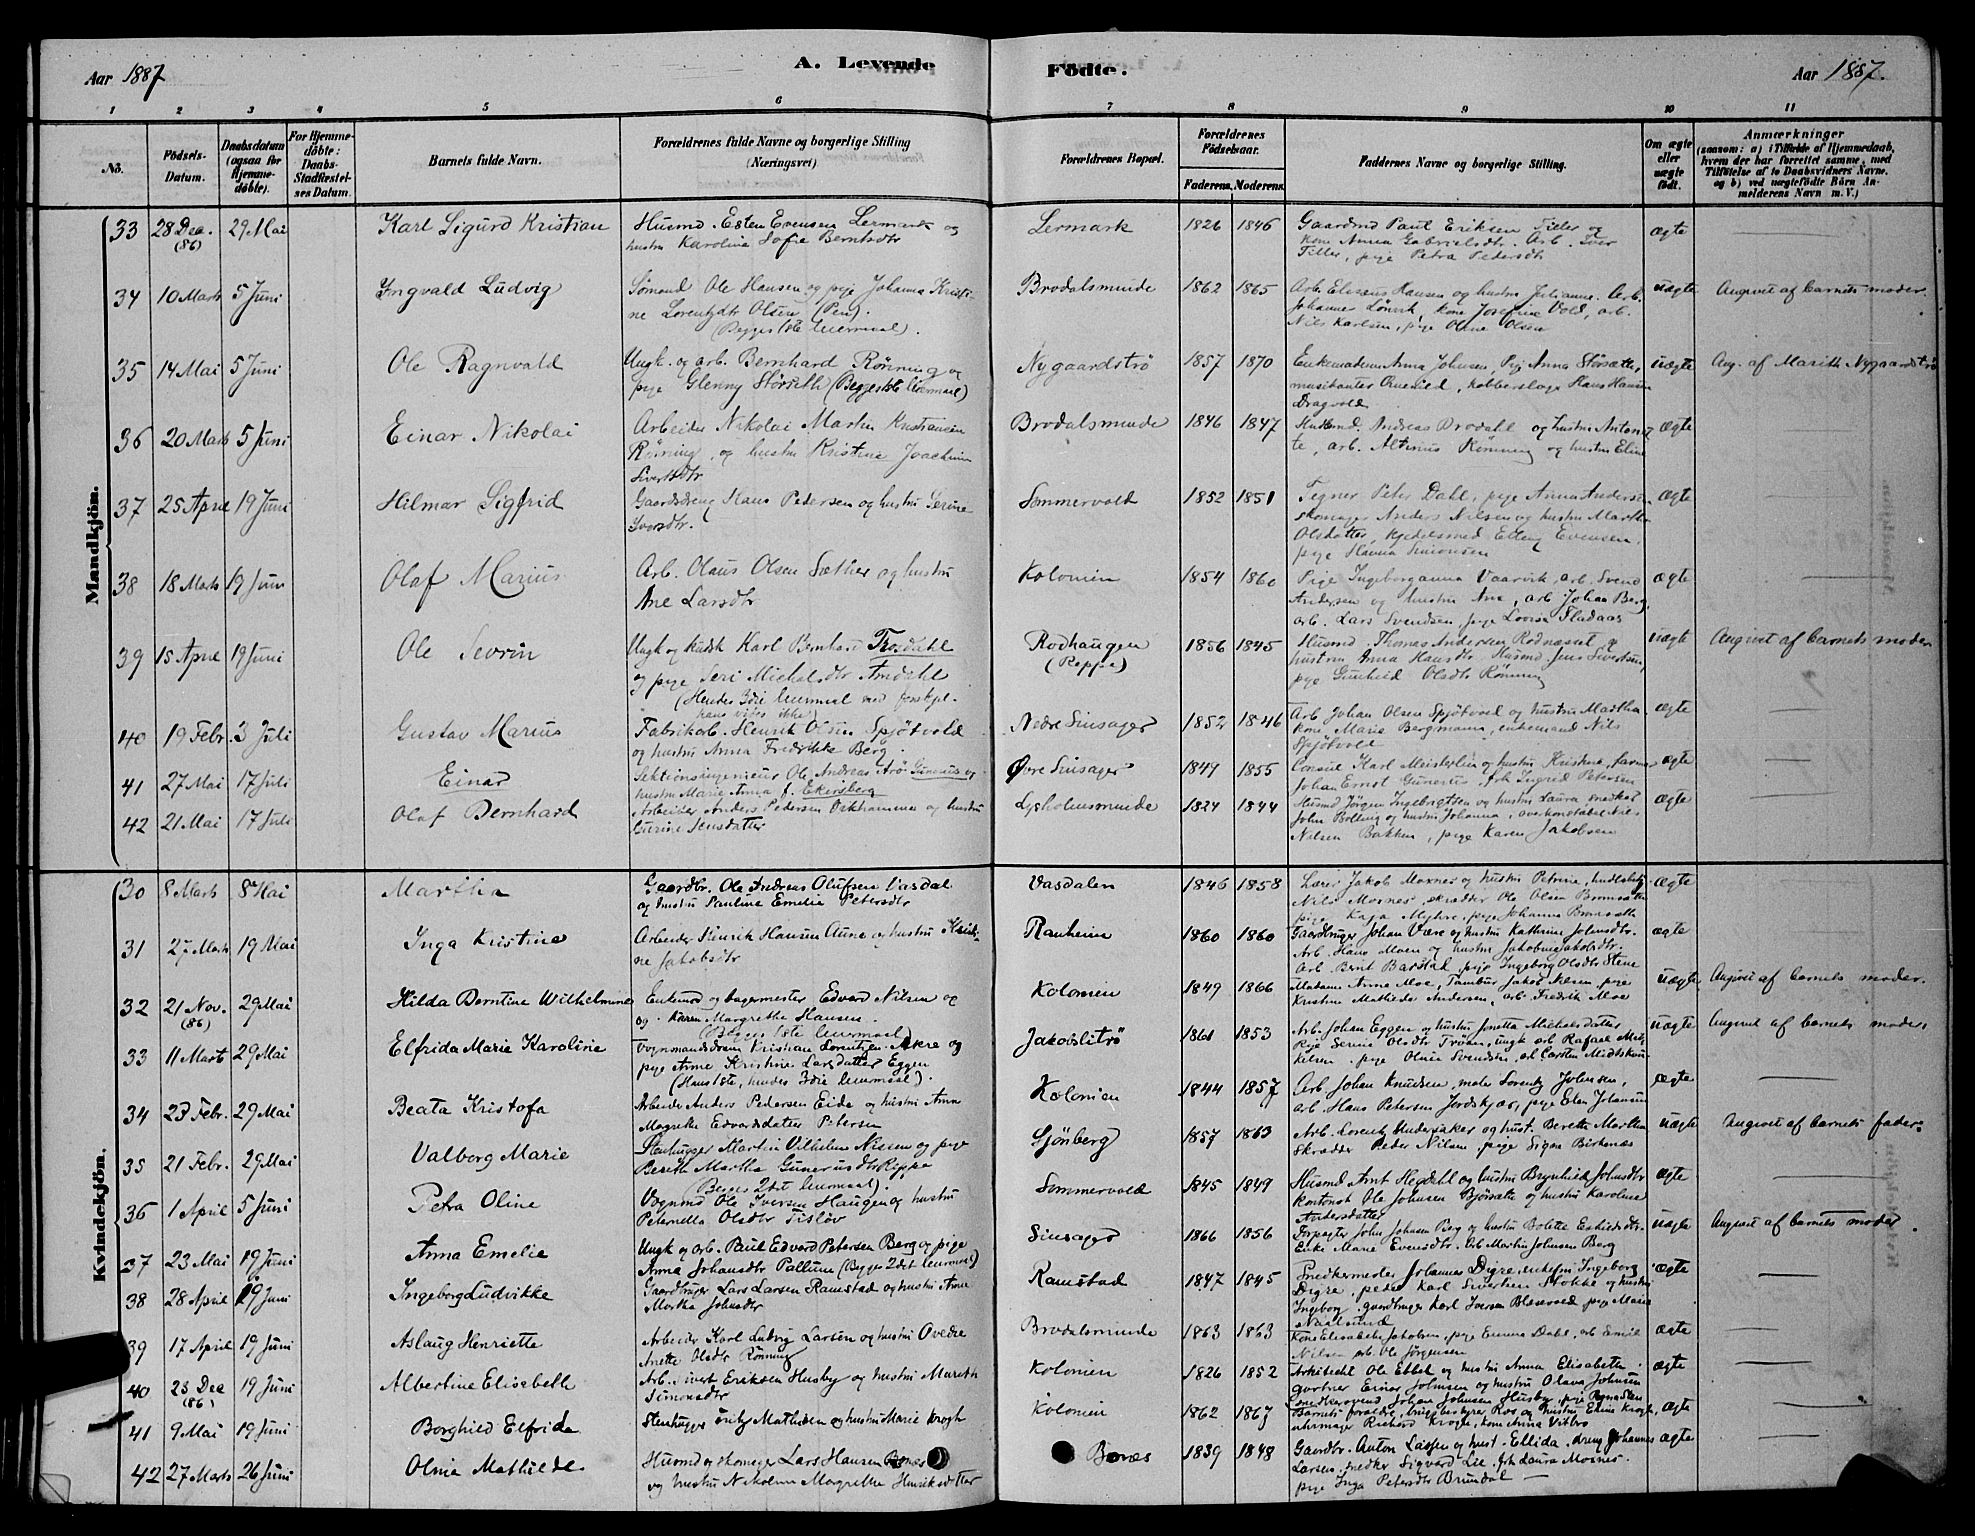 Aar 1887
A. Levende
Födte.
Aar 1887.
1 2 3 4 5 6 7 8 9 10 11
No.
Födsels-Datum.
Daabsdatum (ogsaa for Hjemmedöbte).
For Hjemmedöbte: Daabs-Stadfæstelses Datum.
Barnets fulde Navn.
Forældrenes fulde Navne og borgerlige Stilling (Næringsvei)
Forældrenes Bopæl.
Forældrenes Födselsaar.
Faderens. Moderens.
Faddernes Navne og borgerlige Stilling.
Om ægte eller uægte födt.
Anmærkninger
(saasom: a) i Tilfælde af Hjemmedaab,
hvem der har forrettet samme, med
Tilföielse af to Daabsvidners Navne,
og b) ved uægtefödte Börn An-
melderens Navn m. V.)
Mandkjön.
33 28 Dec. (86) 29 Mai Karl Sigurd Kristian Husmd Esten Evensen Lermark og
hustru Karolina Sofie Berntsdtr
Lermark 1826 1846 Gaardmd Paul Eriksen Tiller og
kone Anna Gabrielsdtr. Arb. Iver
Tiller, pige Petra Pedersdtr
ægte
34 10 Marts 5 Juni Ingvald Ludvig Sømand Ole Hansen og pige Johanna Kristi-
ne Lorentsdtr Olsen
(Begges 1ste leiermaal).
Brodalsmunde 1862 1865 Arb. Eliseus Hansen og hustru Julianne. Arb.
Johannes Lönvik, kone Josefine Vold, arb.
Nils Karlsen, pige Oline Olsen
uægte Angivet af barnets moder.
35 14 Mai 5 Juni Ole Ragnvald Ungk. og arb. Bernhard Rönning og
pige Glenny Störseth (Begges 1ste leiermaal)
Nygaardströ 1857 1870 Enkemadam Anna Johnsen, Pige Anna Störsæth,
musikanter, kobberslager Hans Hansen
Dragvold
uægte Ang. af Marith Nygaardströ
36 20 Marts 5 Juni Einar Nikolai Arbeider Nikolai Martin Kristiansen
Rönning og hustru Kristine Joachim
Sivertsdtr
Brodalsmunde 1846 1847 Andreas Brodahl og hustru Antonet-
te, arb. Altinius Rönning og hustru Eline
ægte
37 25 April 19 Juni Hilmar Sigfrid Gaardsdreng Hans Pedersen og hustru Serine
Iversdtr.
Sommervold 1852 1851 Tegner Peter Dahl, pige Anna Anders
skomager Anders Nilsen og hustru Martha
Olsdatter, kjedelsmed Elling Evensen,
pige Hanna Simonsen
ægte
38 18 Marts 19 Juni Olaf Marius Arb. Olaus Olsen Sæther og hustru
Ane Larsdtr
Kolonien 1854 1860 Pige Ingeborganna Vaarvik, arb. Svend
Andersen og hustru Ane, arb Johan Berg,
arb. Lars Svendsen, pige Lovise Fladaas
ægte
39 15 April 19 Juni Ole Sevrin Ungk og kudsk Karl Bernhard Brodahl
og pige Seri Michelsdtr Amdahl
(Hendes 3die leiermaal med forskjel.
hans vides ikke)
Rodhaugen
(Reppe)
1856 1845 Husmd Thomas Andersen Rodnæsset og
hustru Anna Hansdtr Husmd Jens Sivertsen,
pige Gunhild Olsdtr Rönning
uægte Angivet af barnets moder
40 19 Febr. 3 Juli Gustav Marius Fabrikarb. Henrik Olsen Spjötvold
og hustru Anna Fredrikke Berg.
Nedre Sinsager 1852 1846 Arb Johan Olsen Spjötvold og hustru Martha
kone Marie Bergmann, enkemand Nils
Spjötvold
ægte
41 27 Mai 17 Juli Einar Sektionsingeniör Ole Andreas Arö Gunnerus og
hustru Marie Anna f. Ekersberg
Övre Sinsager 1849 1855 Consul Karl Meisterlin og hustru Kristine,
Johan Ernst Gunerus, frk Ingrid Petersen
ægte
42 21 Mai 17 Juli Olaf Bernhard Arbeider Anders Pedersen Oskhammer og hustru
Gurine Jensdatter
Lysholmsmunde 1824 1844 Husmd Jörgen Ingebrigtsen og hustru Laura snedker
John Bolling og hustru Johanna, overkonstabel Nils
Nilsen Bakken, pige Karen Jakobsen
ægte
Kvindekjön.
30 8 Marts 8 Mai Martha Gaardbr. Ole Andreas Olufsen Vasdal
og hustru Pauline Emelie Petersdtr
Vasdalen 1846 1858 Lærer Jakob Moxnes og hustru Petrine,
Nils Moxnes, skrædder Ole Olsen
pige Kaja Myhre, pige Johanna
ægte
31 27 Marts 19 Mai Inga Kristine Arbeider Henrik Hansen Aune og hustru Kristi-
ne Jakobsdtr
Ranheim 1860 1860 Gaardbruger Johan Være og hustru Kathrine Johnsdtr.
Arb. Hans Moen og hustru Jakobine Jakobsdtr.
Arb Bernt Barstad, pige Ingeborg Olsdtr Stene
ægte
32 21 Nov. (86) 29 Mai Hilda Berntine Wilhelmine Enkemd og bagermester Edvard Nilsen og
og Karen Margrethe Hansen.
(Begges 1ste leiermaal)
Kolonien 1849 1866 Madam Anne Moe, Tambur Jakob, pige
Kristine Mathilde Andersen, arb. Fredrik Moe
uægte Angivet af barnets moder.
33 11 Marts 29 Mai Elfrida Marie Karoline Vognmandsdreng Kristian Lorentsen Akre og
pige Anne Kristine Larsdatter Eggen
(Hans 1ste, hendes 3die leiermaal).
Jakobslitrö 1861 1853 Arb. Johan Eggen og hustru Jonetta Michelsdatter
Pige Serine Olsdtr Tröen, ungk arb Rafael Mik-
kelsen, pige Oline Svendsen, arb Carsten Midtskou
uægte Angivet af barnets moder.
34 23 Febr. 29 Mai Beata Kristofa Arbeider Anders Pedersen Eide og hustru Anna
Magrete Edvardsdatter Petersen
Kolonien 1844 1857 Arb. Johan Knudsen, maler Lorentz Johnsen,
arb. Hans Petersen Jordskjær, pige Elen Johansen
ægte
35 21 Febr. 29 Mai Valborg Marie Stenhugger Martin Vilhelm Nissen og pige
Bereth Martha Gunerusdtr Reppe
(Begges 2det leiermaal).
Sjönberg 1857 1863 Arb. Lorents Undersaker og hust. Berette Morten
Skrædder Peder Nilsen, pige Sigen Birkenæs
uægte Angivet af barnets fader.
36 1 April 5 Juni Petra Oline Vognmd Ole Iversen Haugen og hustru
Peternella Olsdtr Tislöv
Sommervold 1845 1849 Husmd Arnt Hegdahl og hustru Brynhild Johnsdtr
kontorist Ole Johnsen Björsæth og hustru Karoline
Andersdatter
ægte
37 23 Mai 19 Juni Anna Emelie Ungk og arb. Paul Edvard Petersen Berg og pige
Anna Johansdtr Pallum (Begges 2det leiermaal)
Sinsager 1866 1856 Forpagter John Johnsen Berg og hustru Bolette Eskildsdtr.
Enke Marie Evensdtr. Arb Martin Johnsen Berg
uægte Angivet af barnets moder.
38 28 April 19 Juni Ingeborg Ludvikke Gaardbruger Lars Larsen Ramstad og hustru Anne
Martha Johnsdtr
Ramstad 1847 1845 Snedkermester Johannes Digre, enkefru Ingeborg
Digre, Karl Sivertsen Stokke og hustru
Ingeborg, gaardbruger Karl Iversen Blæsevold pige Marie
ægte
39 17 April 19 Juni Aslaug Henriette Arbeider Karl Ludvig Larsen og hustru Ovedie
Anette Olsdtr Rönning
Brodalsmunde 1863 1863 Kone Elisabeth Jakobsen, pige Emma Dahl, arb Emil
Nilsen arb. Ole Jörgensen
ægte
40 23 Dec (86) 19 Juni Albertine Elisabeth Arb. Sivert Eriksen Husby og hustru Mareth
Simonsdtr
Kolonien 1826 1852 Arkitekt Ole Ebbel og hustru Anna Elisabeth.
gartner Einar Johnsen og hustru Olava Johnsen
ægte
41 9 Mai 19 Juni Borghild Elfrida Stenhugger Fritz Mathisen og hustru Marie Krogh
Kolonien 1862 1867 Barnets forældre, bryggeribestyrer Ros og hustru Eline Krogh,
uhrmager Richard Krogh, kone Anna Vitbro
ægte
42 27 Marts 26 Juni Olina Mathilde Husmd og skomager Lars Hansen Bonæs
og hustru Nikoline Magrethe Henriksdatter
Bonæs 1839 1848 Gaardbr. Anton Lassen og hust. Ellida, dreng Johannes
Larsen, snedker Sigvard Lie, frk Laura Moxnes.
pige Inga Petersdtr Brundal
ægte